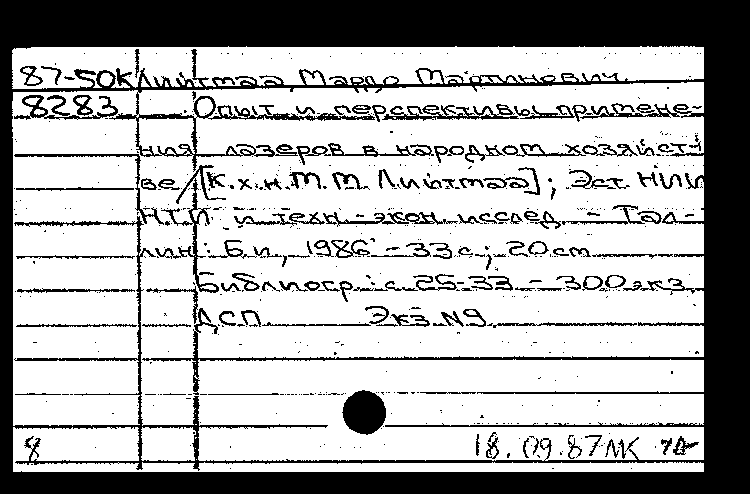 87-50К Лийтмаа, Мардо Мартинович.
8283 Опыт и перспективы примене-
ния лазеров в народном хозяйст-
ве / [К.х.н. М.М. Лийтмаа]; Эст. НИИ
Н.Т.И. и техн.-экон. исслед. - Тал-
лин: Б.и., 1986 - 33 с; 20 cm
Библиогр.: с 25-33 - 300 экз.
ДСП. Экз. N9.
8 18.09.87